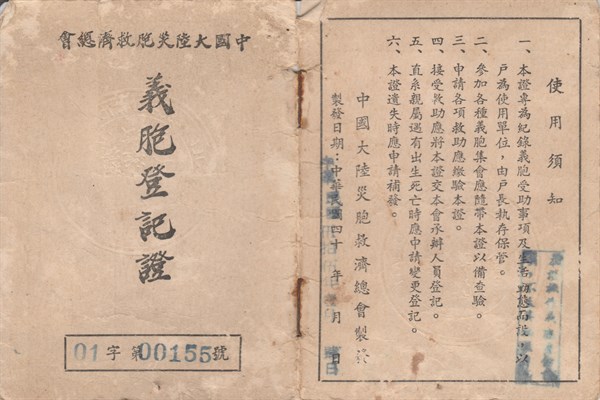 中國大陸災胞救濟總會
義胞登記證
01字第00155號
使用須知
一、本證專為紀錄義胞受助事項及生活動態而設，以
戶為使用單位，由戶長執存保管。
二、參加各種義胞集會應隨帶本證以備查驗。
三、申請各項救助應繳驗本證。
四、接受救助應將本證交本會承辦人員登記。
五、直系親屬遇有出生死亡時應申請變更登記。
六、本證遺失時應申請補發。
中國大陸災胞救濟總會製發
製發日期：中華民國四十年月日